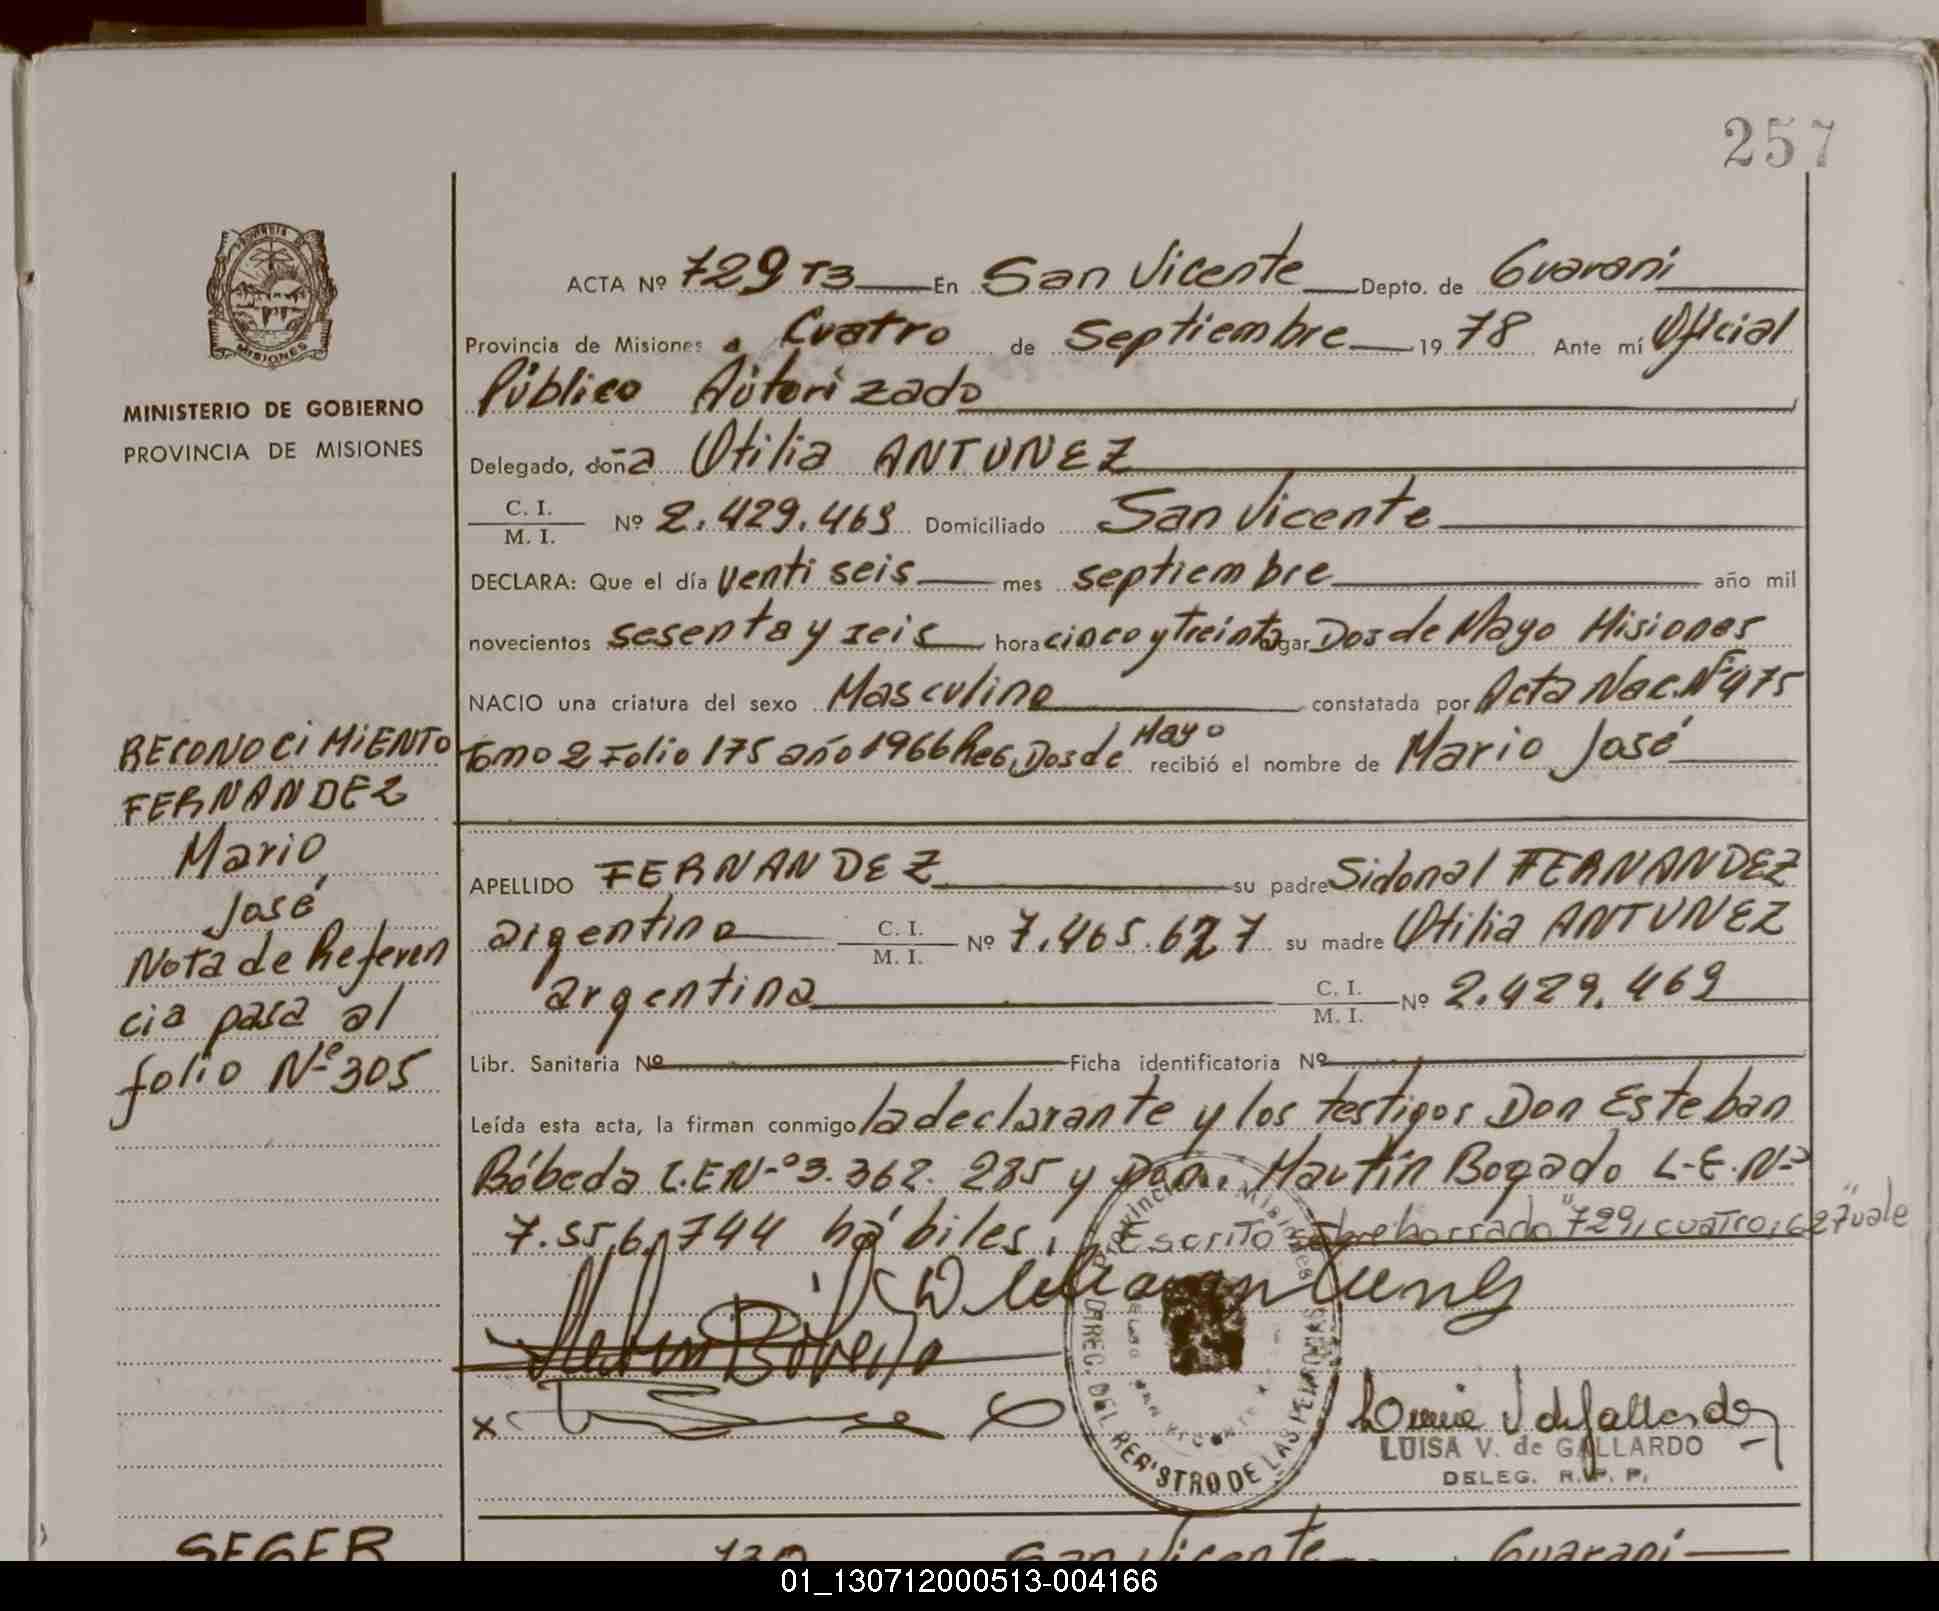 257
ACTA Nº 729 T3 En San Vicente Depto. de Guaraní
Provincia de Misiones a Cuatro de Septiembre 19 78 Ante mí Oficial
Público Autorizado
Delegado, doña Otilia ANTUNEZ
C. I.
M. I.
Nº 2.429.469 Domiciliado San Vicente
DECLARA: Que el día venti seis mes septiembre año mil
novecientos sesenta y seis hora cinco y treinta lugar Dos de Mayo Misiones
NACIO una criatura del sexo Masculino constatada por Acta Nac. Nº 475
Tomo 2 Folio 175 año 1966 Reg. Dos de Mayo recibió el nombre de Mario José
APELLIDO FERNANDEZ su padre Sidonal FERNANDEZ
argentino C. I. M. I. Nº 7.465.627 su madre Otilia ANTUNEZ
argentina C. I. M. I. Nº 2.429.469
Libr. Sanitaria Nº Ficha identificatoria Nº
Leída esta acta, la firman conmigo la declarante y los testigos Don Esteban
Bóbeda L.E Nº 3.362.285 y Don. Martín Bogado L.E. Nº
7.556.744 hábiles. Escrito sobre borrado "729, cuatro, 627" vale
LUISA V. de GALLARDO
DELEG. R. P. P.
Provincia Misiones
DIREC. DEL REGISTRO DE LAS PERSONAS
MISIONES
MINISTERIO DE GOBIERNO
PROVINCIA DE MISIONES
RECONOCIMIENTO
FERNANDEZ
Mario
José
Nota de Referen
cia pasa al
folio Nº 305
SEGER
730 San Vicente Guaraní
01_130712000513-004166